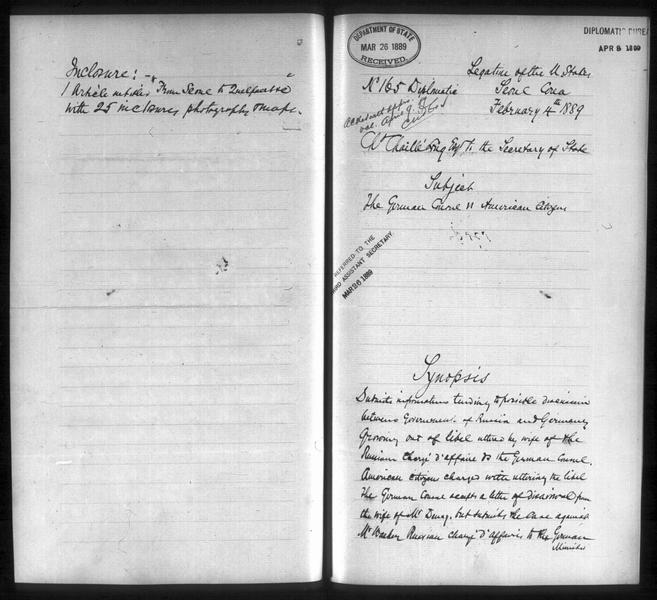 Inclosure:
1 Article entitled "From Seoul to Quelpaert"
with 25 inclosures photographs & maps.
DEPARTMENT OF STATE
MAR 26 1889
RECEIVED.
DIPLOMATIC BUREA
APR 8 1889
No 165 Diplomatic
Legation of the U States
Seoul Corea
February 4th 1889
Ch Chaillé Long Esq To the Secretary of State
Subject
The German Consul vs American Citizens
REFERRED TO THE
THIRD ASSISTANT SECRETARY.
MAR 26 1889
Synopsis
Submits information tending to possible discussion
between Governments of Russia and Germany
Growing out of libel uttered by wife of the
Russian Chargé d'affaire vs the German Consul.
American citizen charged with uttering the libel
The German Consul accepts a letter of disavowal from
the wife of Mr but submits the case against
Mr Waeber Russian chargé d'affaires to the German
Minister